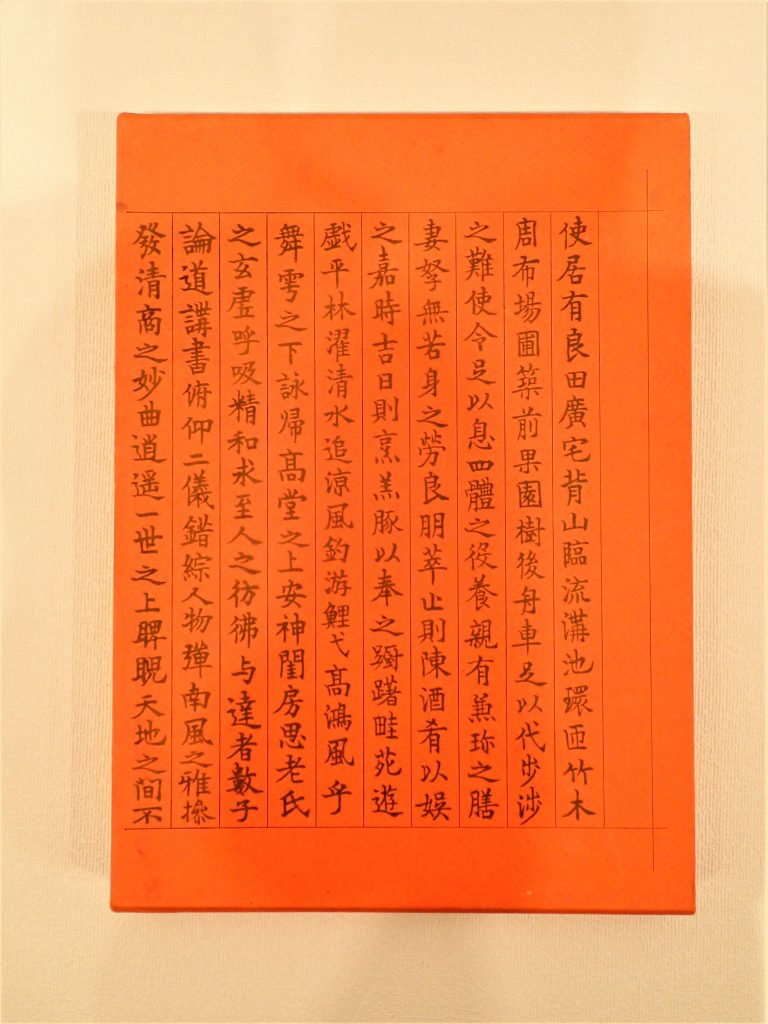 使居有良田廣宅背山臨流溝池環匝竹木
周布場圃築前果園樹後舟車足以代步涉
之難使令足以息四體之役養親有兼珎之膳
妻孥無若身之勞良朋萃止則陳酒肴以娯
之嘉時吉日則烹羔豚以奉之躕躇畦苑遊
戯平林濯清水追涼風釣游鯉弋高鴻風乎
舞雩之下詠帰高堂之上安神閨房思老氏
之玄虛呼吸精和求至人之彷彿与達者數子
論道講書俯仰二儀錯綜人物彈南風之雅操
發清商之妙曲逍遥一世之上睥睨天地之间不